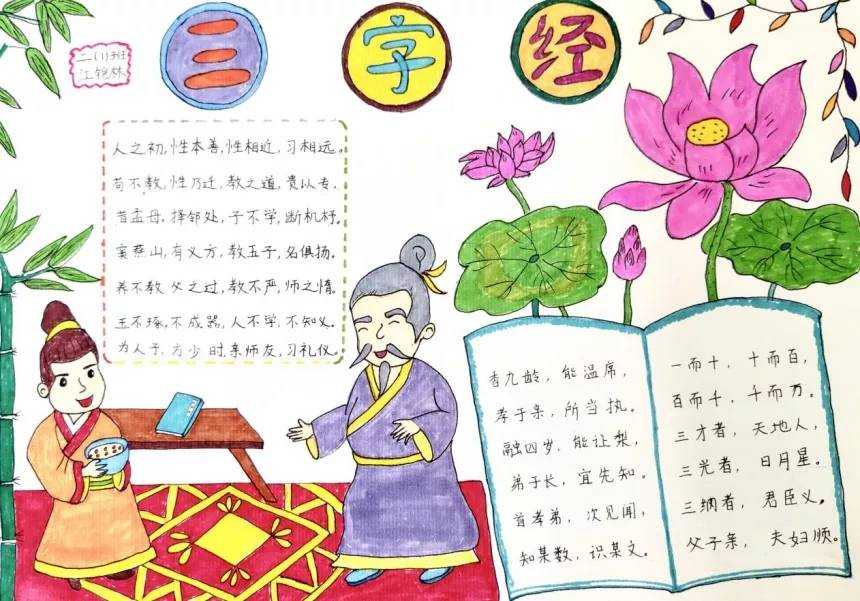 三字经
二(1)班
江铠林
人之初,性本善,性相近,习相远。
苟不教,性乃迁,教之道,贵以专。
昔孟母,择邻处,子不学,断机杼。
窦燕山,有义方,教五子,名俱扬。
养不教,父之过,教不严,师之惰。
玉不琢,不成器,人不学,不知义。
为人子,方少时,亲师友,习礼仪。
香九龄,能温席,
孝于亲,所当执。
融四岁,能让梨,
弟于长,宜先知。
首孝弟,次见闻,
知某数,识某文。
一而十,十而百,
百而千,千而万。
三才者,天地人,
三光者,日月星。
三纲者,君臣义。
父子亲,夫妇顺。